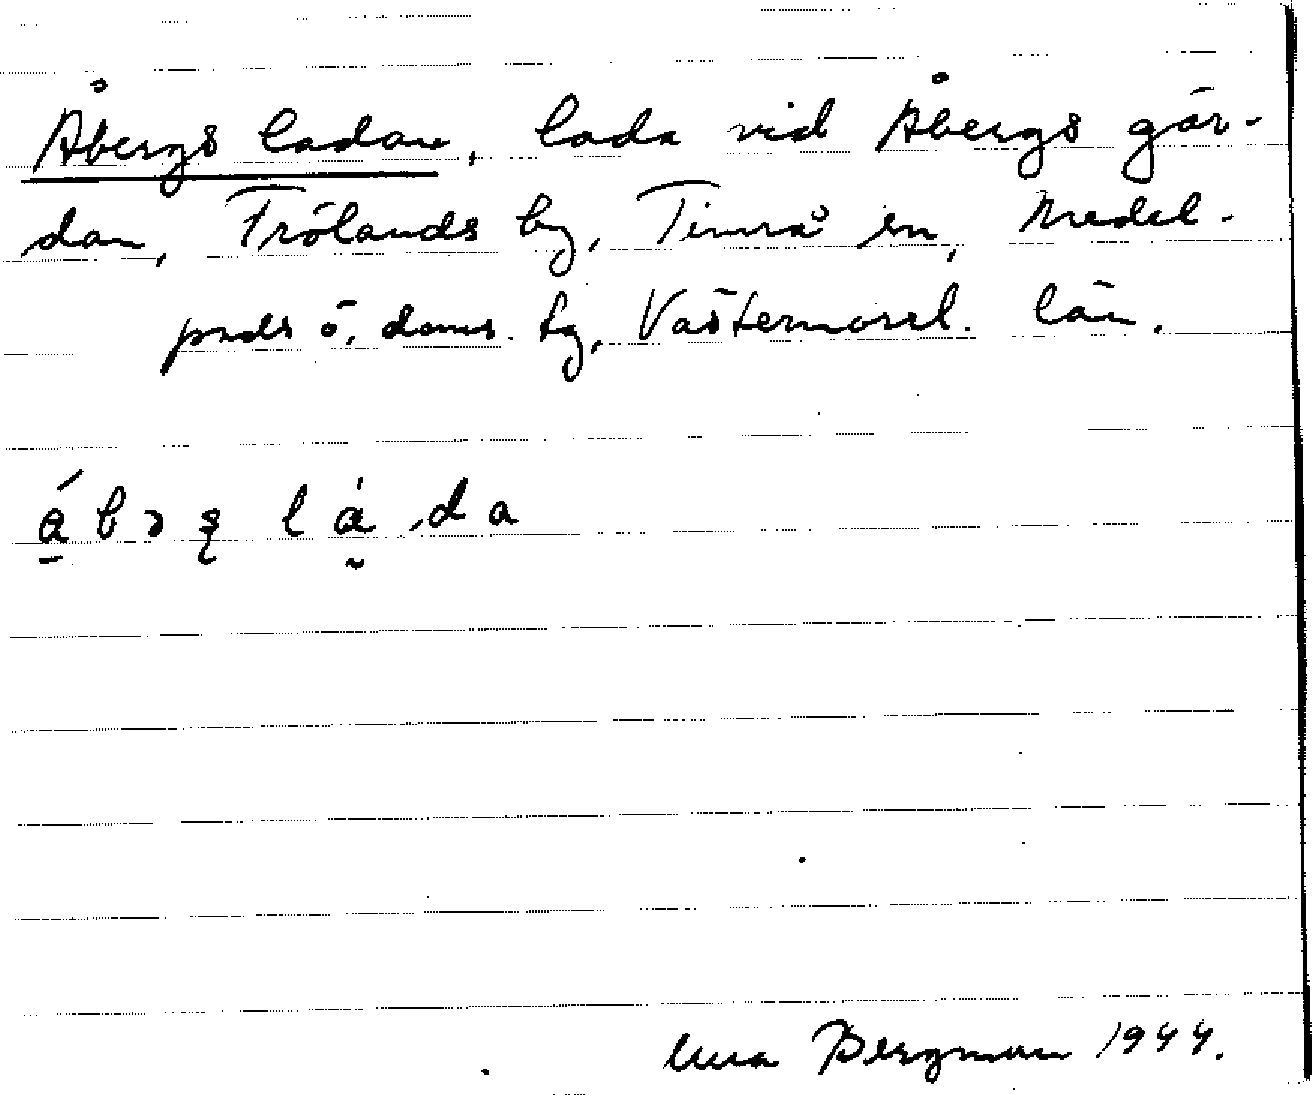 Åbergs ladan, lada vid Åbergs går-
dan, Frölands by, Timrå sn, Medel-
pads ö. doms. tg, Västernorrl. län.
Bergman 1944.